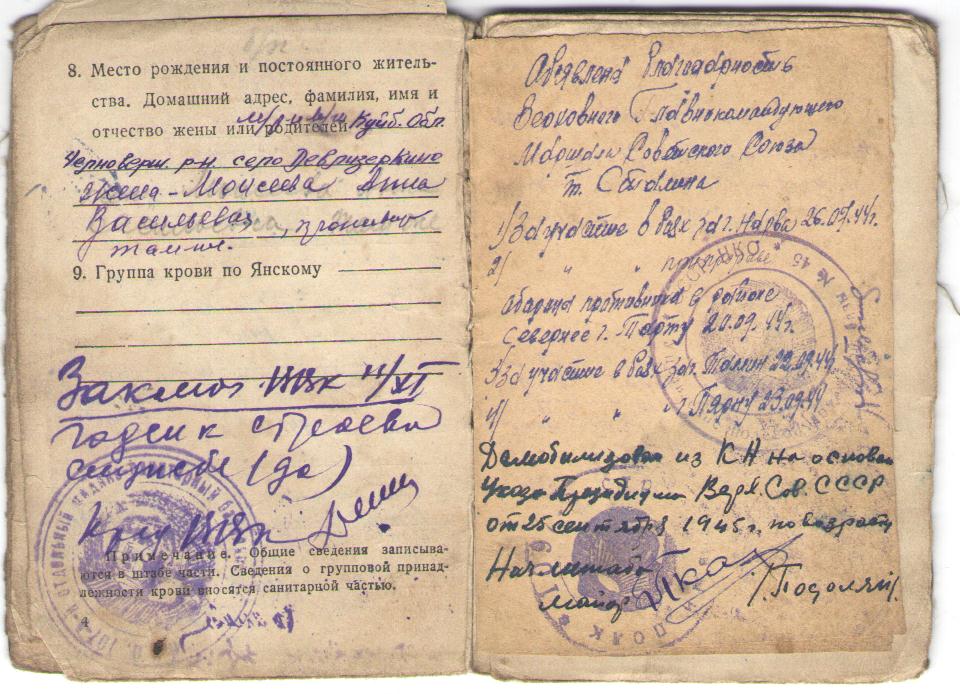 8. Место рождения и постоянного житель-
ства. Домашний адрес, фамилия, имя и
отчество жены или родителей Куйб. Обл.
Черноверш. р-н. село Девлизеркино
жена - Моисеева Анна
Васильевна, проживает
там же.
9. Группа крови по Янскому
Заключ. 11/VI
годен к строевой
службе (да)
Примечание. Общие сведения записыва-
ются в штабе части. Сведения о групповой принад-
лежности крови вносятся санитарной частью.
4
Обявлена благодарность
Верховного Главнокомандующего
Маршала Советского Союза
т. Сталина
1) За участие в боях за г. Нарва 26.07.44г.
2) " " при прорыве
обороны противника в районе
севернее г. Тарту 20.09.44г.
3) за участие в боях за г. Талин 22.09.44г
4) " " " г. Пярну 23.09.44г
Демобилизован из КА на основан
Указа Президиума Верх. Сов. СССР
от 25 сентября 1945г. по возрасту
Нач. штаба
майор